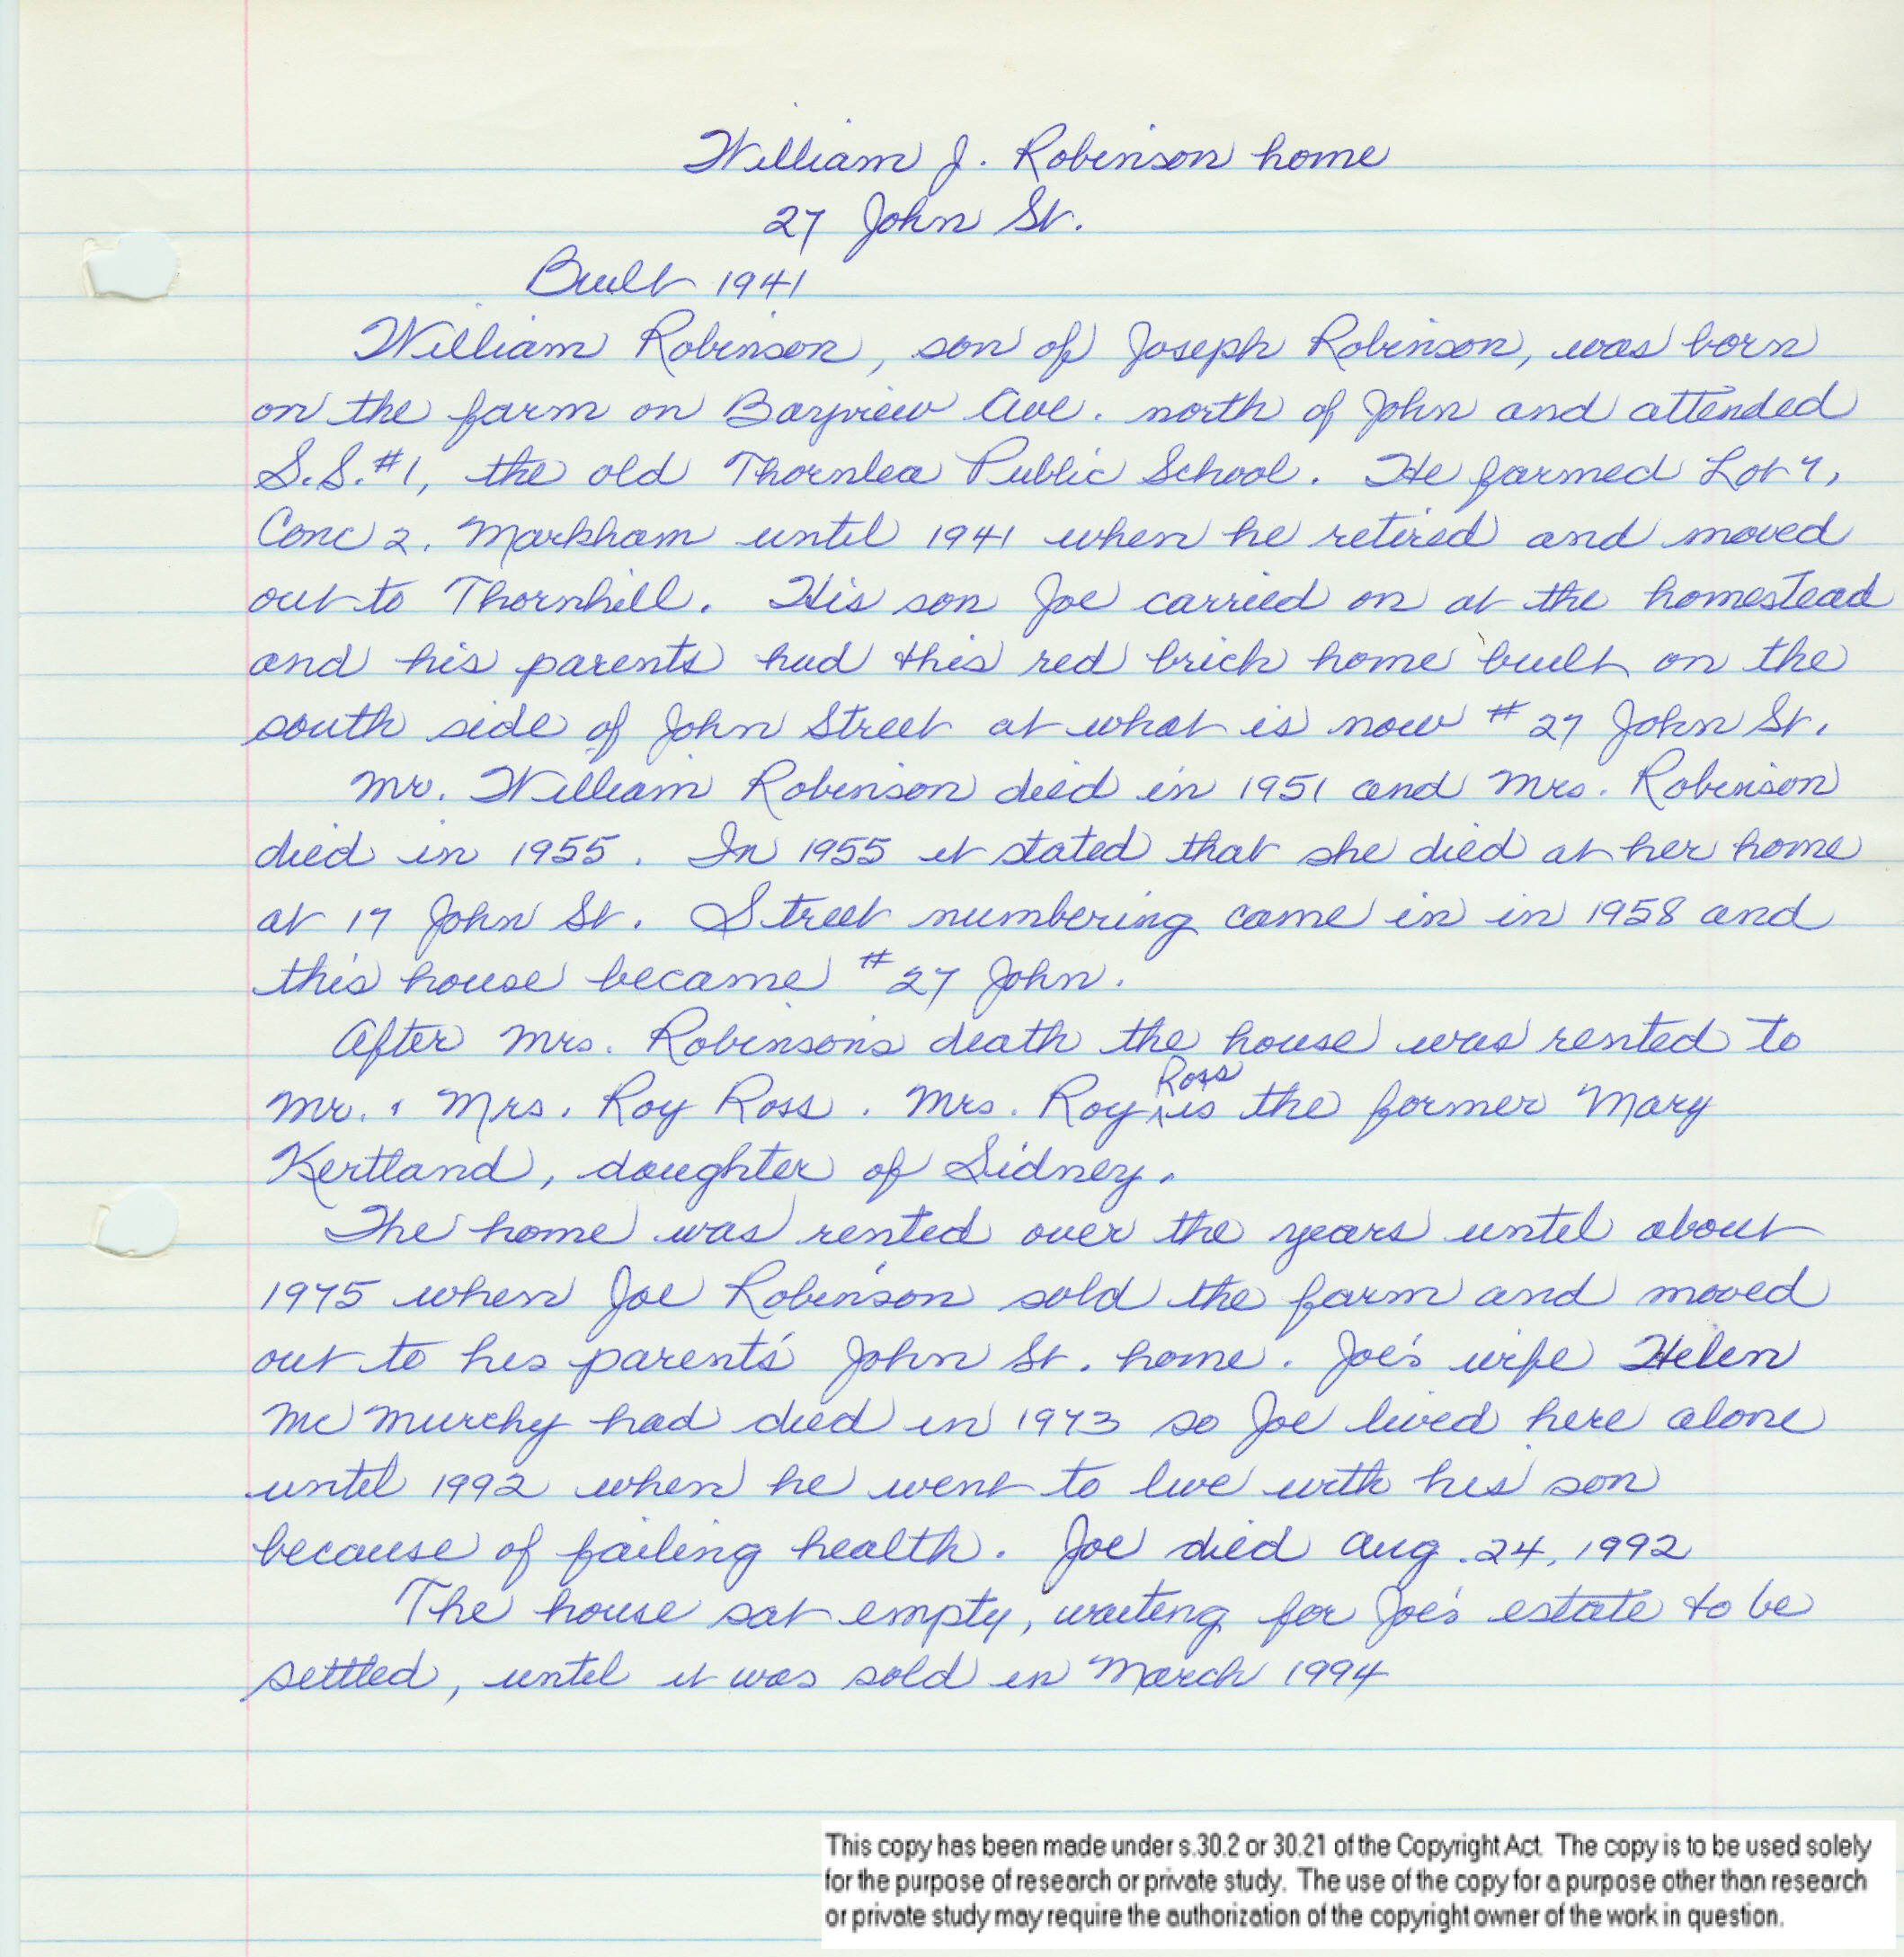 William J. Robinson home
27 John St.
Built 1941
William Robinson, son of Joseph Robinson, was born
on the farm on Bayview Ave. north of John and attended
S.S.#1, the old Thornlea Public School. He farmed Lot 7,
Conc 2. Markham until 1941 when he retired and moved
out to Thornhill. His son Joe carried on at the homestead
and his parents had this red brick home built on the
south side of John Street at what is now # 27 John St.
Mr. William Robinson died in 1951 and Mrs. Robinson
died in 1955. In 1955 it stated that she died at her home
at 17 John St. Street numbering came in in 1958 and
this house became # 27 John.
After Mrs. Robinson's death the house was rented to
Mr. & Mrs. Roy Ross. Mrs. Roy Ross is the former Mary
Kertland, daughter of Sidney.
The home was rented over the years until about
1975 when Joe Robinson sold the farm and moved
out to his parent's John St. home. Joe's wife Helen
McMurchy had died in 1973 so Joe lived here alone
until 1992 when he went to live with his son
because of failing health. Joe died Aug. 24, 1992
The house sat empty, waiting for Joe's estate to be
settled, until it was sold in March 1994
This copy has been made under s.30.2 or 30.21 of the Copyright Act. The copy is to be used solely
for the purpose of research or private study. The use of the copy for a purpose other than research
or private study may require the authorization of the copyright owner of the work in question.